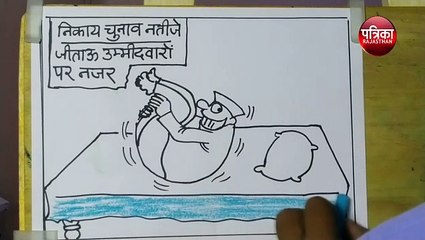 निकाय चुनाव नतीजे
जीताऊ उम्मीदवारों
पर नजर
पत्रिका
RAJASTHAN